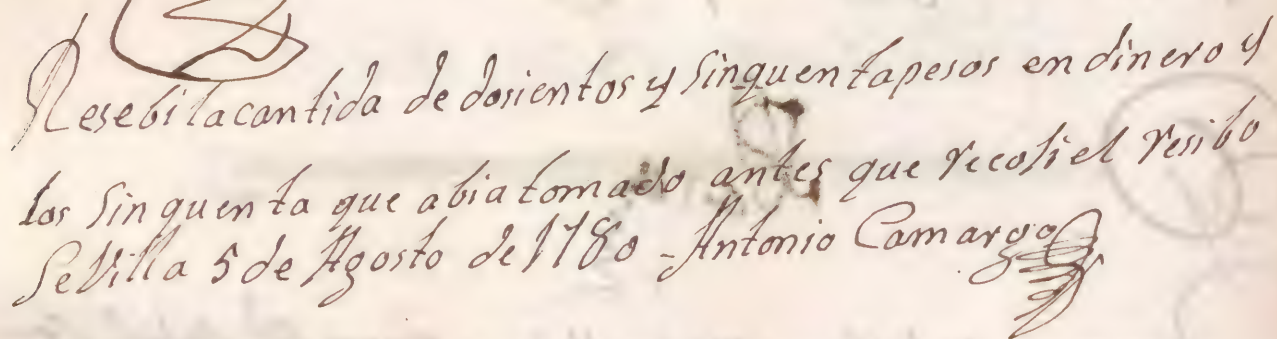 Resebi la cantida de dosientos y sinquenta pesos en dinero y
los sinquenta que abia tomado antes que recosi el resibo
Sevilla 5 de Agosto de 1780 - Antonio Camargo